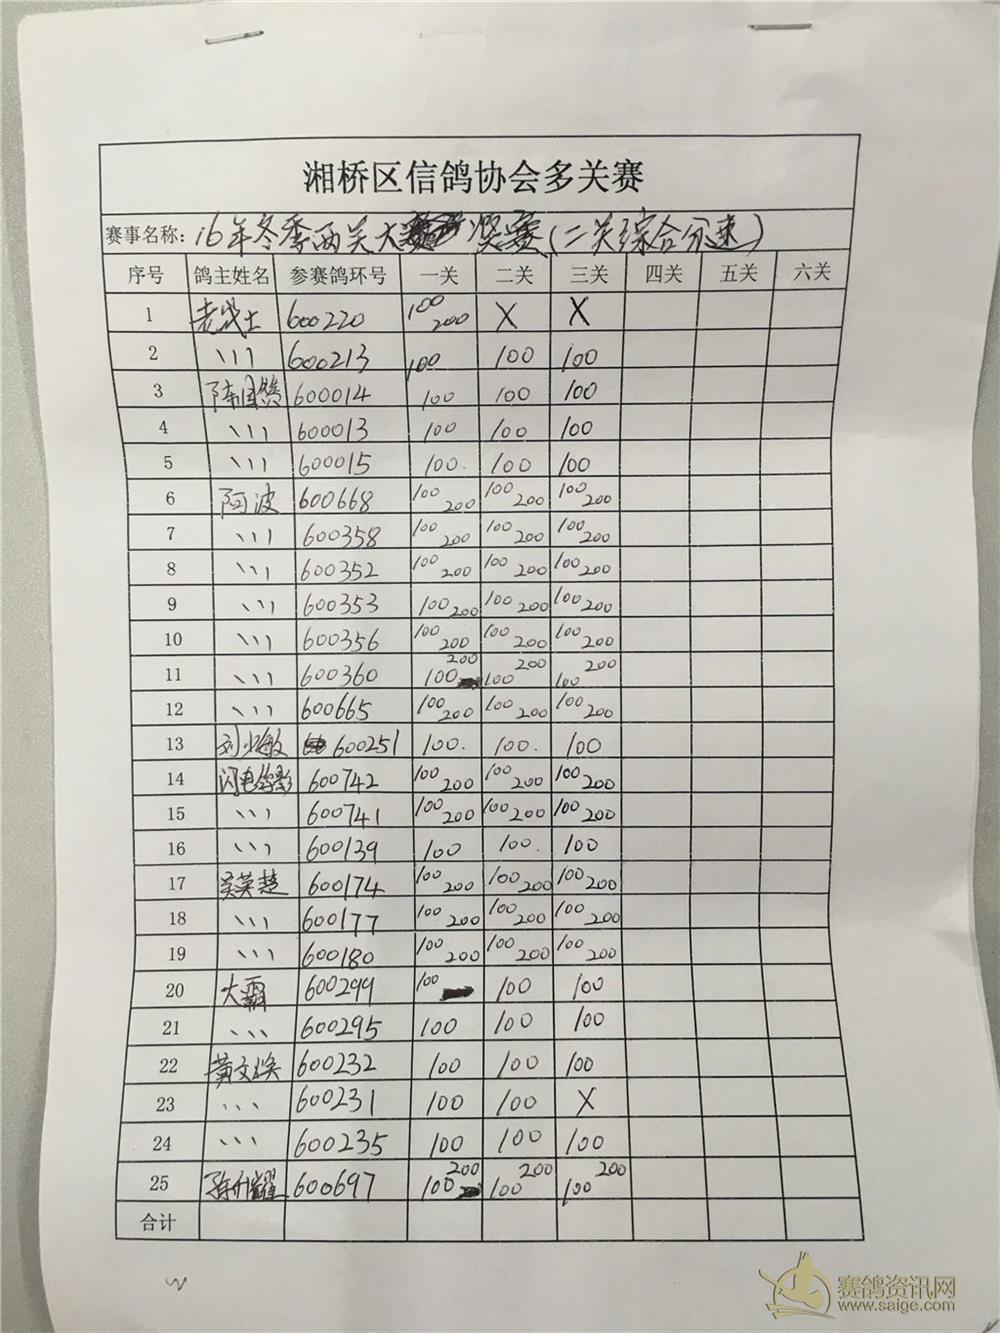 湘桥区信鸽协会多关赛
赛事名称: 16年冬季两关大奖赛(二关综合分速)
序号 鸽主姓名 参赛鸽环号 一关 二关 三关 四关 五关 六关
1 老战士 600220 100 200 X X
2 、、、 600213 100 100 100
3 陈国鸽 600014 100 100 100
4 、、、 600013 100 100 100
5 、、、 600015 100. 100 100
6 阿波 600668 100 200 100 200 100 200
7 、、、 600358 100 200 100 200 100 200
8 、、、 600352 100 200 100 200 100 200
9 、、、 600353 100 200 100 200 100 200
10 、、、 600356 100 200 100 200 100 200
11 、、、 600360 100 200 100 200 100 200
12 、、、 600665 100 200 100 200 100 200
13 刘少敏 600251 100. 100. 100
14 闪电 600742 100 200 100 200 100 200
15 、、、 600741 100 200 100 200 100 200
16 、、、 600139 100 100. 100
17 吴英楚 600174 100 200 100 200 100 200
18 、、、 600177 100 200 100 200 100 200
19 、、、 600180 100 200 100 200 100 200
20 大霸 600299 100 100 100
21 、、、 600295 100 100 100
22 黄文焕 600232 100 100 100
23 、、、 600231 100 100 X
24 、、、 600235 100 100 100
25 耀 600697 100 200 100 200 100 200
合计
赛鸽资讯网
www.saige.com